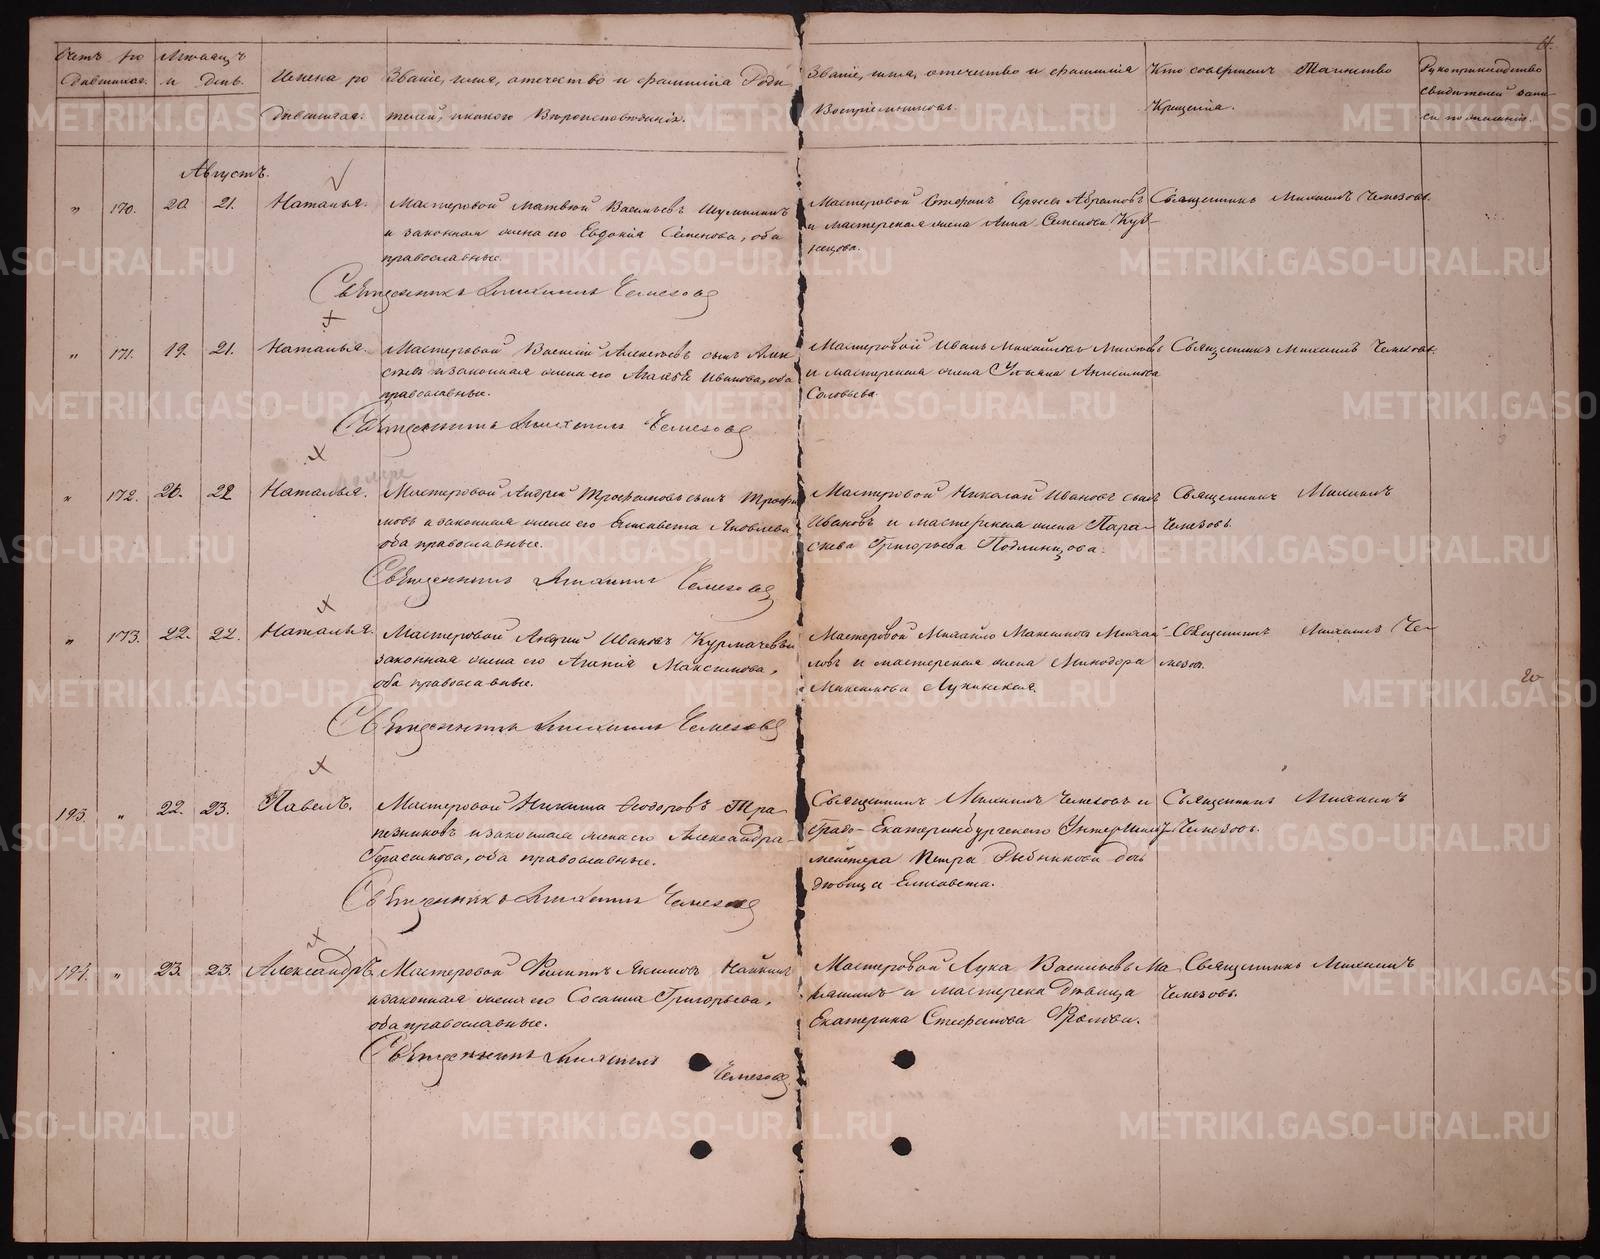 Счетъ ро Мѣсяцъ
дившихся. и день.
Имена ро
дившихся.
Званіе, имя, отечество и фамилія Роди
телей, и какого Вѣроисповѣданія.
Званіе, имя, отечество и фамилія
Воспріемниковъ.
Кто совершалъ Таинство
Крещенія.
Рукоприкладство
свидѣтелей запи
си по желанію.
Августъ.
" 170. 20. 21. Наталья.
Мастеровой Матвѣй Васильевъ
и законная жена его Евдокія Семенова, оба
православные.
Мастеровой Стефанъ Абрамовъ
и мастерская жена Анна Семенова Куз-
нецова.
Священникъ Михаилъ Чемезовъ.
Священникъ Михаилъ Чемезовъ
" 171. 19. 21. Наталья.
Мастеровой Василій Алексѣевъ сынъ Алек
сѣевъ и законная жена его Агафья Иванова, оба
православные.
Мастеровой Иванъ Михайловъ
и мастерская жена Ульяна Анисимова
Соловьева.
Священникъ Михаилъ Чемезовъ.
Священникъ Михаилъ Чемезовъ
" 172. 22. Наталья.
Мастеровой Андрей Трофимовъ сынъ Трофи
мовъ и законная жена его Елисавета Яковлева
оба православные.
Мастеровой Николай Ивановъ сынъ
Ивановъ и мастерская жена Пара-
скева Григорьева
Священникъ Михаилъ
Чемезовъ.
Священникъ Михаилъ Чемезовъ
" 173. 22. 22. Наталья.
Мастеровой Андрей Ивановъ
законная жена его Агапія Максимова,
оба православные.
Мастеровой Михайло Максимовъ Михай
ловъ и мастерская жена Минодора
Максимова Лукинская.
Священникъ Михаилъ Че-
мезовъ.
Священникъ Михаилъ Чемезовъ
193. " 22. 23. Павелъ.
Мастеровой Никита Ѳеодоровъ Тра-
пезниковъ и законная жена его Александра
Герасимова, оба православные.
Священникъ Михаилъ Чемезовъ и
Градо-Екатеринбургскаго
мейстера Петра Рыбникова дочь
дѣвица Елисавета.
Священникъ Михаилъ
Чемезовъ.
Священникъ Михаилъ Чемезовъ
194. " 23. 23. Александръ.
Мастеровой Филиппъ Якимовъ
и законная жена его Сосанна Григорьева,
оба православные.
Мастеровой Лука Васильевъ
и мастерска дѣвица
Екатерина Стефанова
Священникъ Михаилъ
Чемезовъ.
Священникъ Михаилъ
Чемезовъ
METRIKI.GASO-URAL.RU